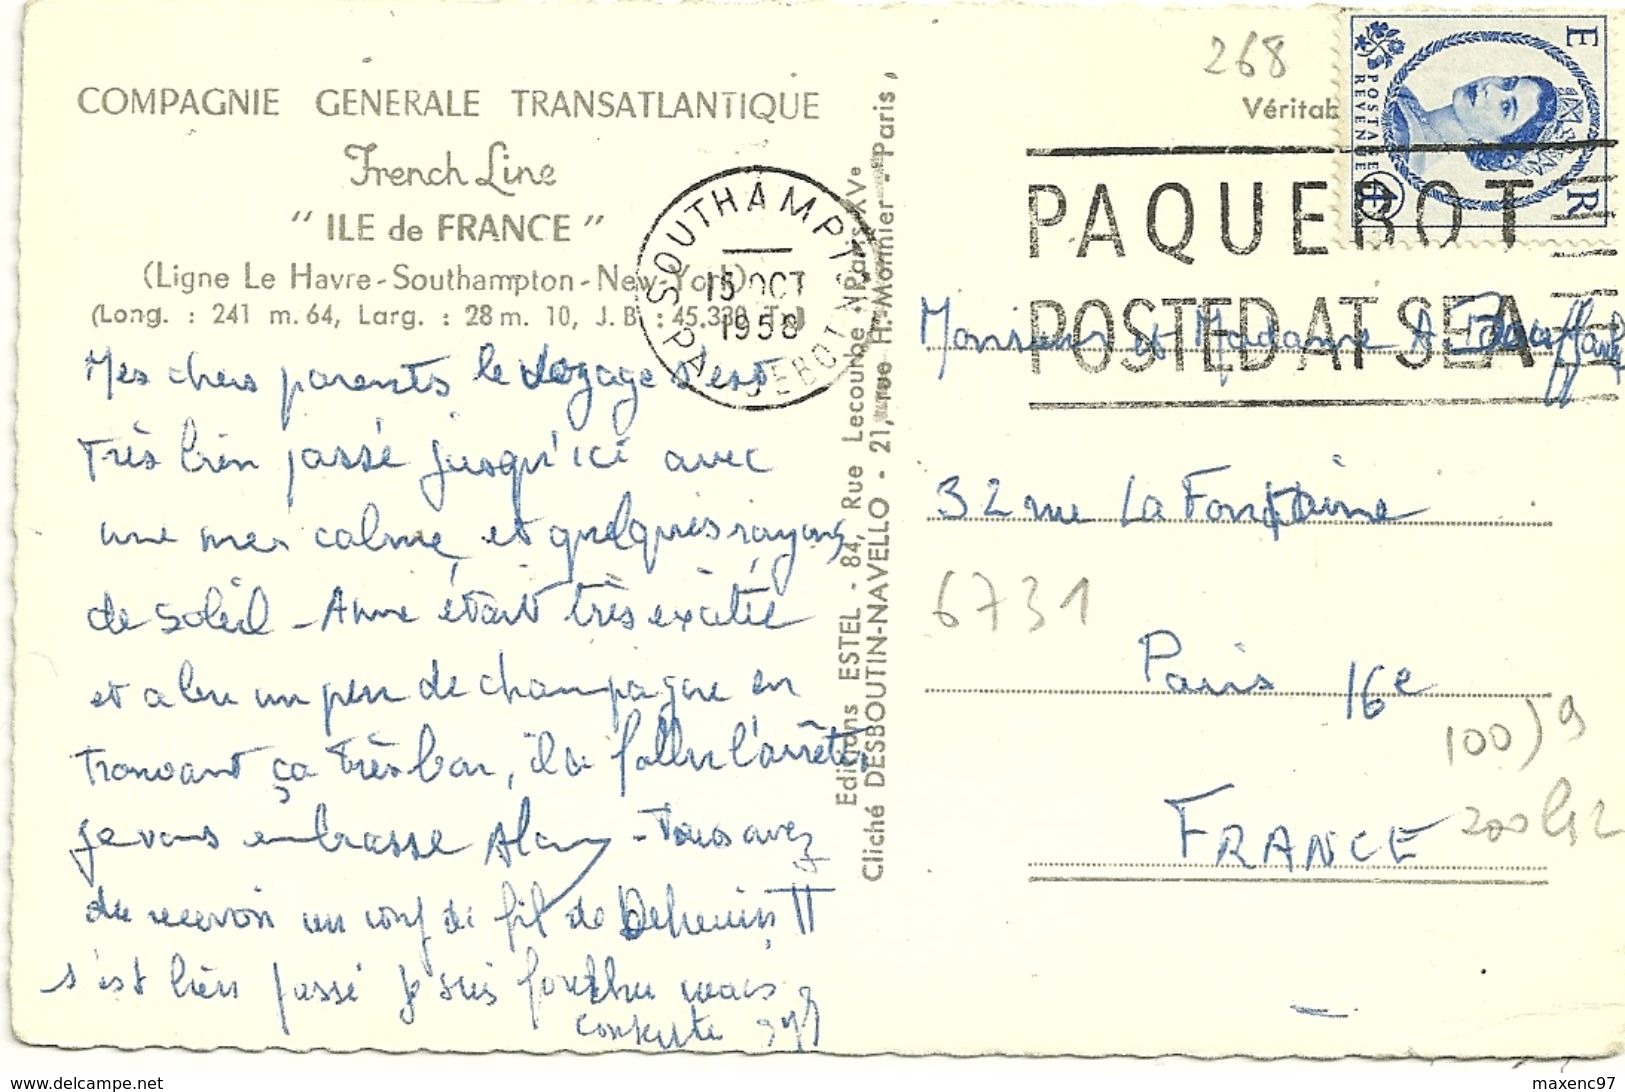 COMPAGNIE GENERALE TRANSATLANTIQUE
French Line
" ILE de FRANCE "
(Ligne Le Havre-Southampton-New-York)
(Long. : 241 m. 64, Larg. : 28 m. 10, J. B. : 45.330 Tx)
Mes chers parents le voyage s'est
très bien passé jusqu'ici avec
une mer calme et quelques rayons
de soleil - Anne était très excitée
et a bu un peu de champagne en
trouvant ça très bon, il a fallu l'arrêter
je vous embrasse Alain - Vous avez
du recevoir un coup de fil de
s'est bien passé je suis mais
SOUTHAMPTON
15 OCT
1958
PAQUEBOT
Editions ESTEL - 84, Rue Lecourbe - Paris XVe
Cliché DESBOUTIN-NAVELLO - 21, rue H.-Monnier - Paris
268
Véritab
E R
POSTAGE
REVENUE
4D
PAQUEBOT
POSTED AT SEA
Monsieur et Madame A
32 rue La Fontaine
6731
Paris 16e
100) 9
FRANCE
maxenc97